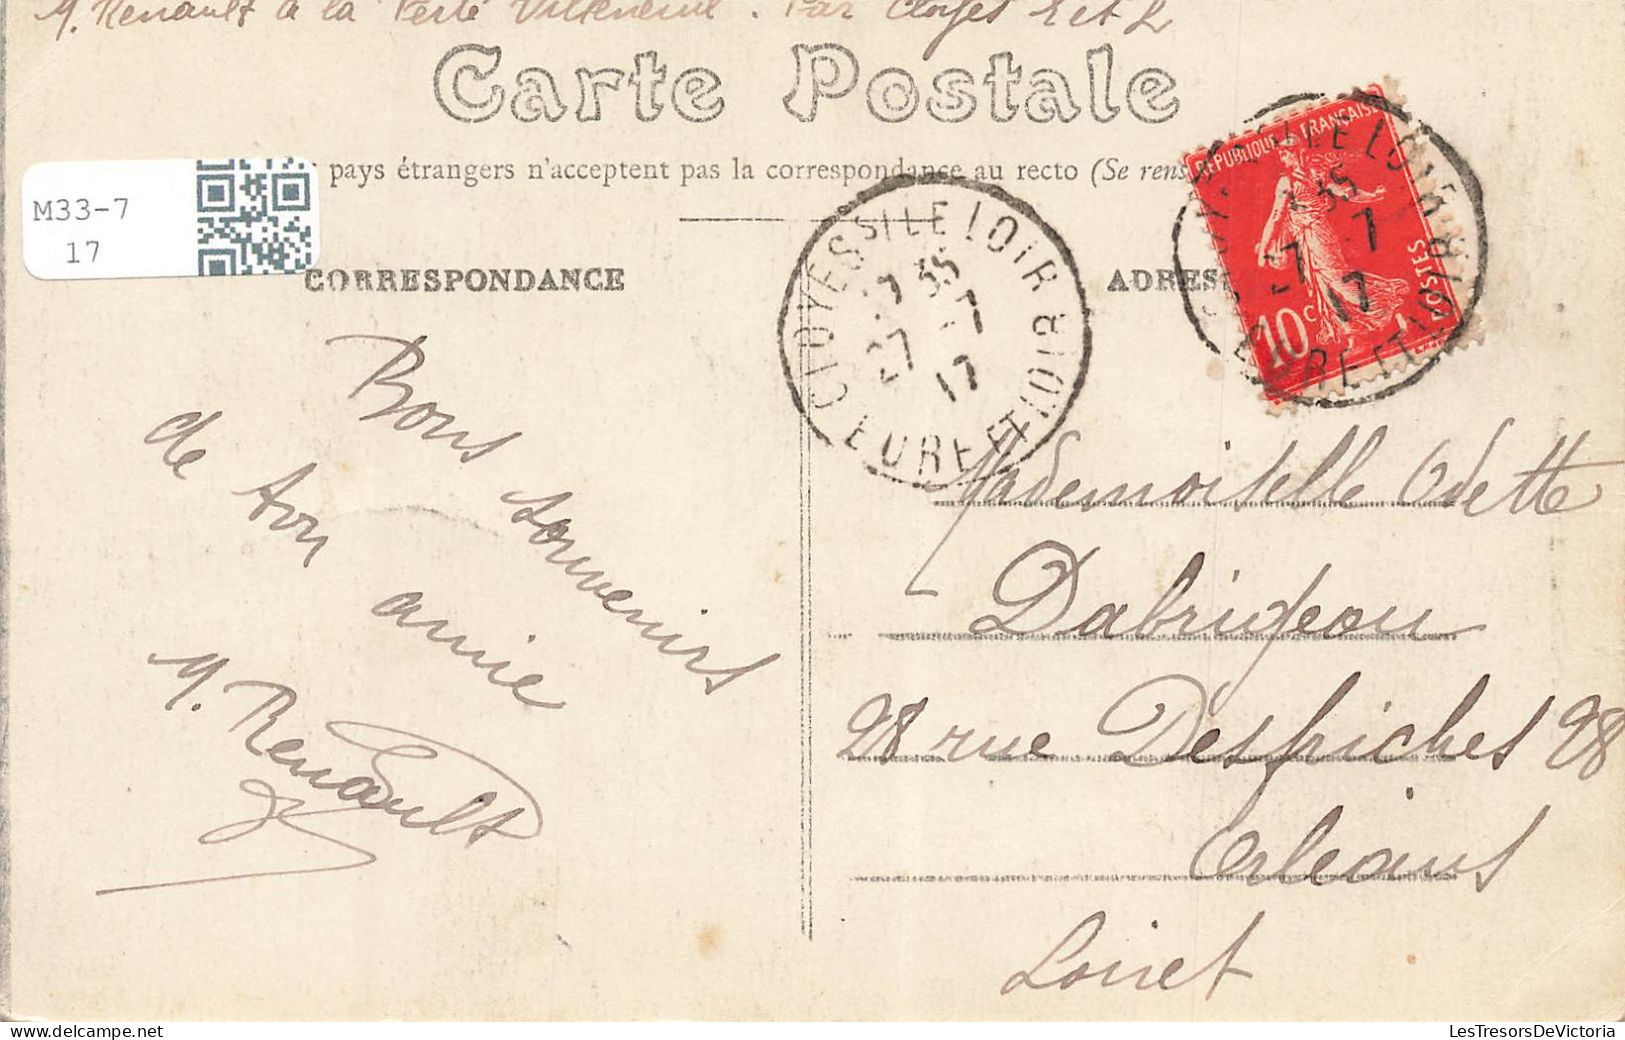 M. Renault à la Ferté Villeneuil. Par Cloyes E et L
Carte Postale
pays étrangers n'acceptent pas la correspondance au recto (Se rens
M33-7
17
CORRESPONDANCE
ADRES
CLOYES S/ LE LOIR
35
27 -7
17
EURE ET LOIR
REPUBLIQUE FRANÇAISE
POSTES
10 c
35
27 7
17
Bons souvenirs
de ton amie
M. Renault
Mademoiselle Odette
Dabrigeou
28 rue Desfriches 28
Orléans
Loiret
LesTresorsDeVictoria